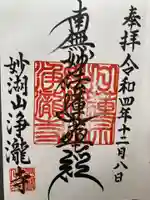 奉拝
令和四年十二月八日
南無妙法蓮華経
妙湖山浄瀧寺